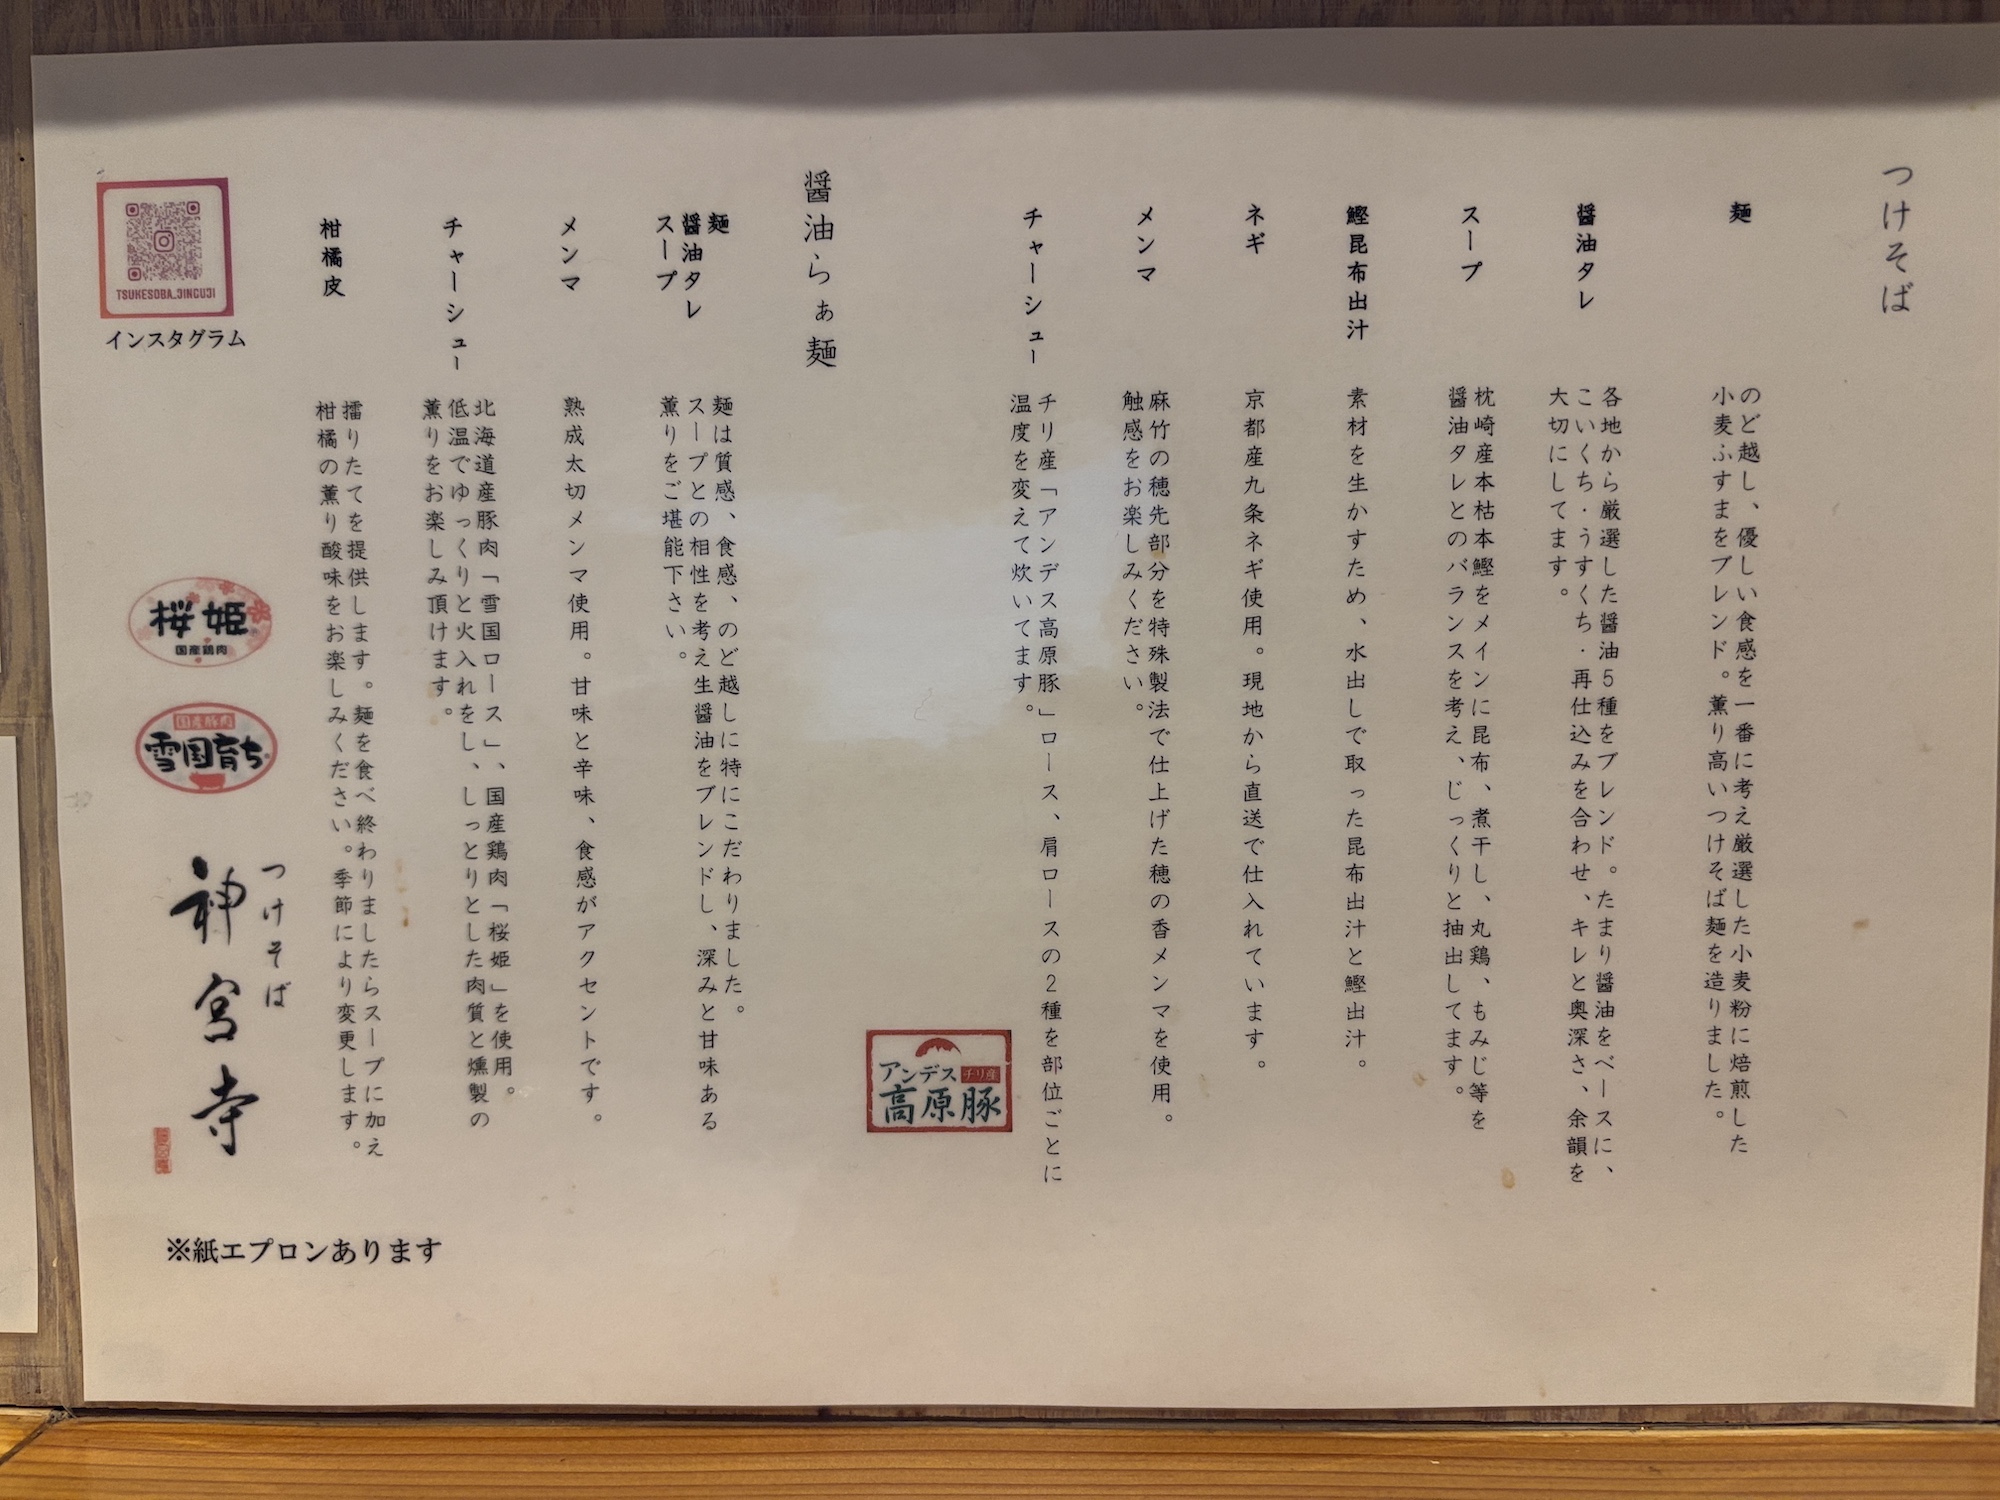 つけそば
麺
のど越し、優しい食感を一番に考え厳選した小麦粉に焙煎した
小麦ふすまをブレンド。薫り高いつけそば麺を造りました。
醤油タレ
各地から厳選した醤油5種をブレンド。たまり醤油をベースに、
こいくち・うすくち・再仕込みを合わせ、キレと奥深さ、余韻を
大切にしてます。
スープ
枕崎産本枯本鰹をメインに昆布、煮干し、丸鶏、もみじ等を
醤油タレとのバランスを考え、じっくりと抽出してます。
鰹昆布出汁
素材を生かすため、水出しで取った昆布出汁と鰹出汁。
ネギ
京都産九条ネギ使用。現地から直送で仕入れています。
メンマ
麻竹の穂先部分を特殊製法で仕上げた穂の香メンマを使用。
触感をお楽しみください。
チャーシュー
チリ産「アンデス高原豚」ロース、肩ロースの2種を部位ごとに
温度を変えて炊いてます。
アンデス チリ産
高原豚
醤油らぁ麺
麺
醤油タレ
スープ
麺は質感、食感、のど越しに特にこだわりました。
スープとの相性を考え生醤油をブレンドし、深みと甘味ある
薫りをご堪能下さい。
メンマ
熟成太切メンマ使用。甘味と辛味、食感がアクセントです。
チャーシュー
北海道産豚肉「雪国ロース」、国産鶏肉「桜姫」を使用。
低温でゆっくりと火入れをし、しっとりとした肉質と燻製の
薫りをお楽しみ頂けます。
柑橘皮
擂りたてを提供します。麺を食べ終わりましたらスープに加え
柑橘の薫り酸味をお楽しみください。季節により変更します。
TSUKESOBA_JINGUJI
インスタグラム
桜姫
国産鶏肉
国産豚肉
雪国育ち
つけそば
神宮寺
※紙エプロンあります